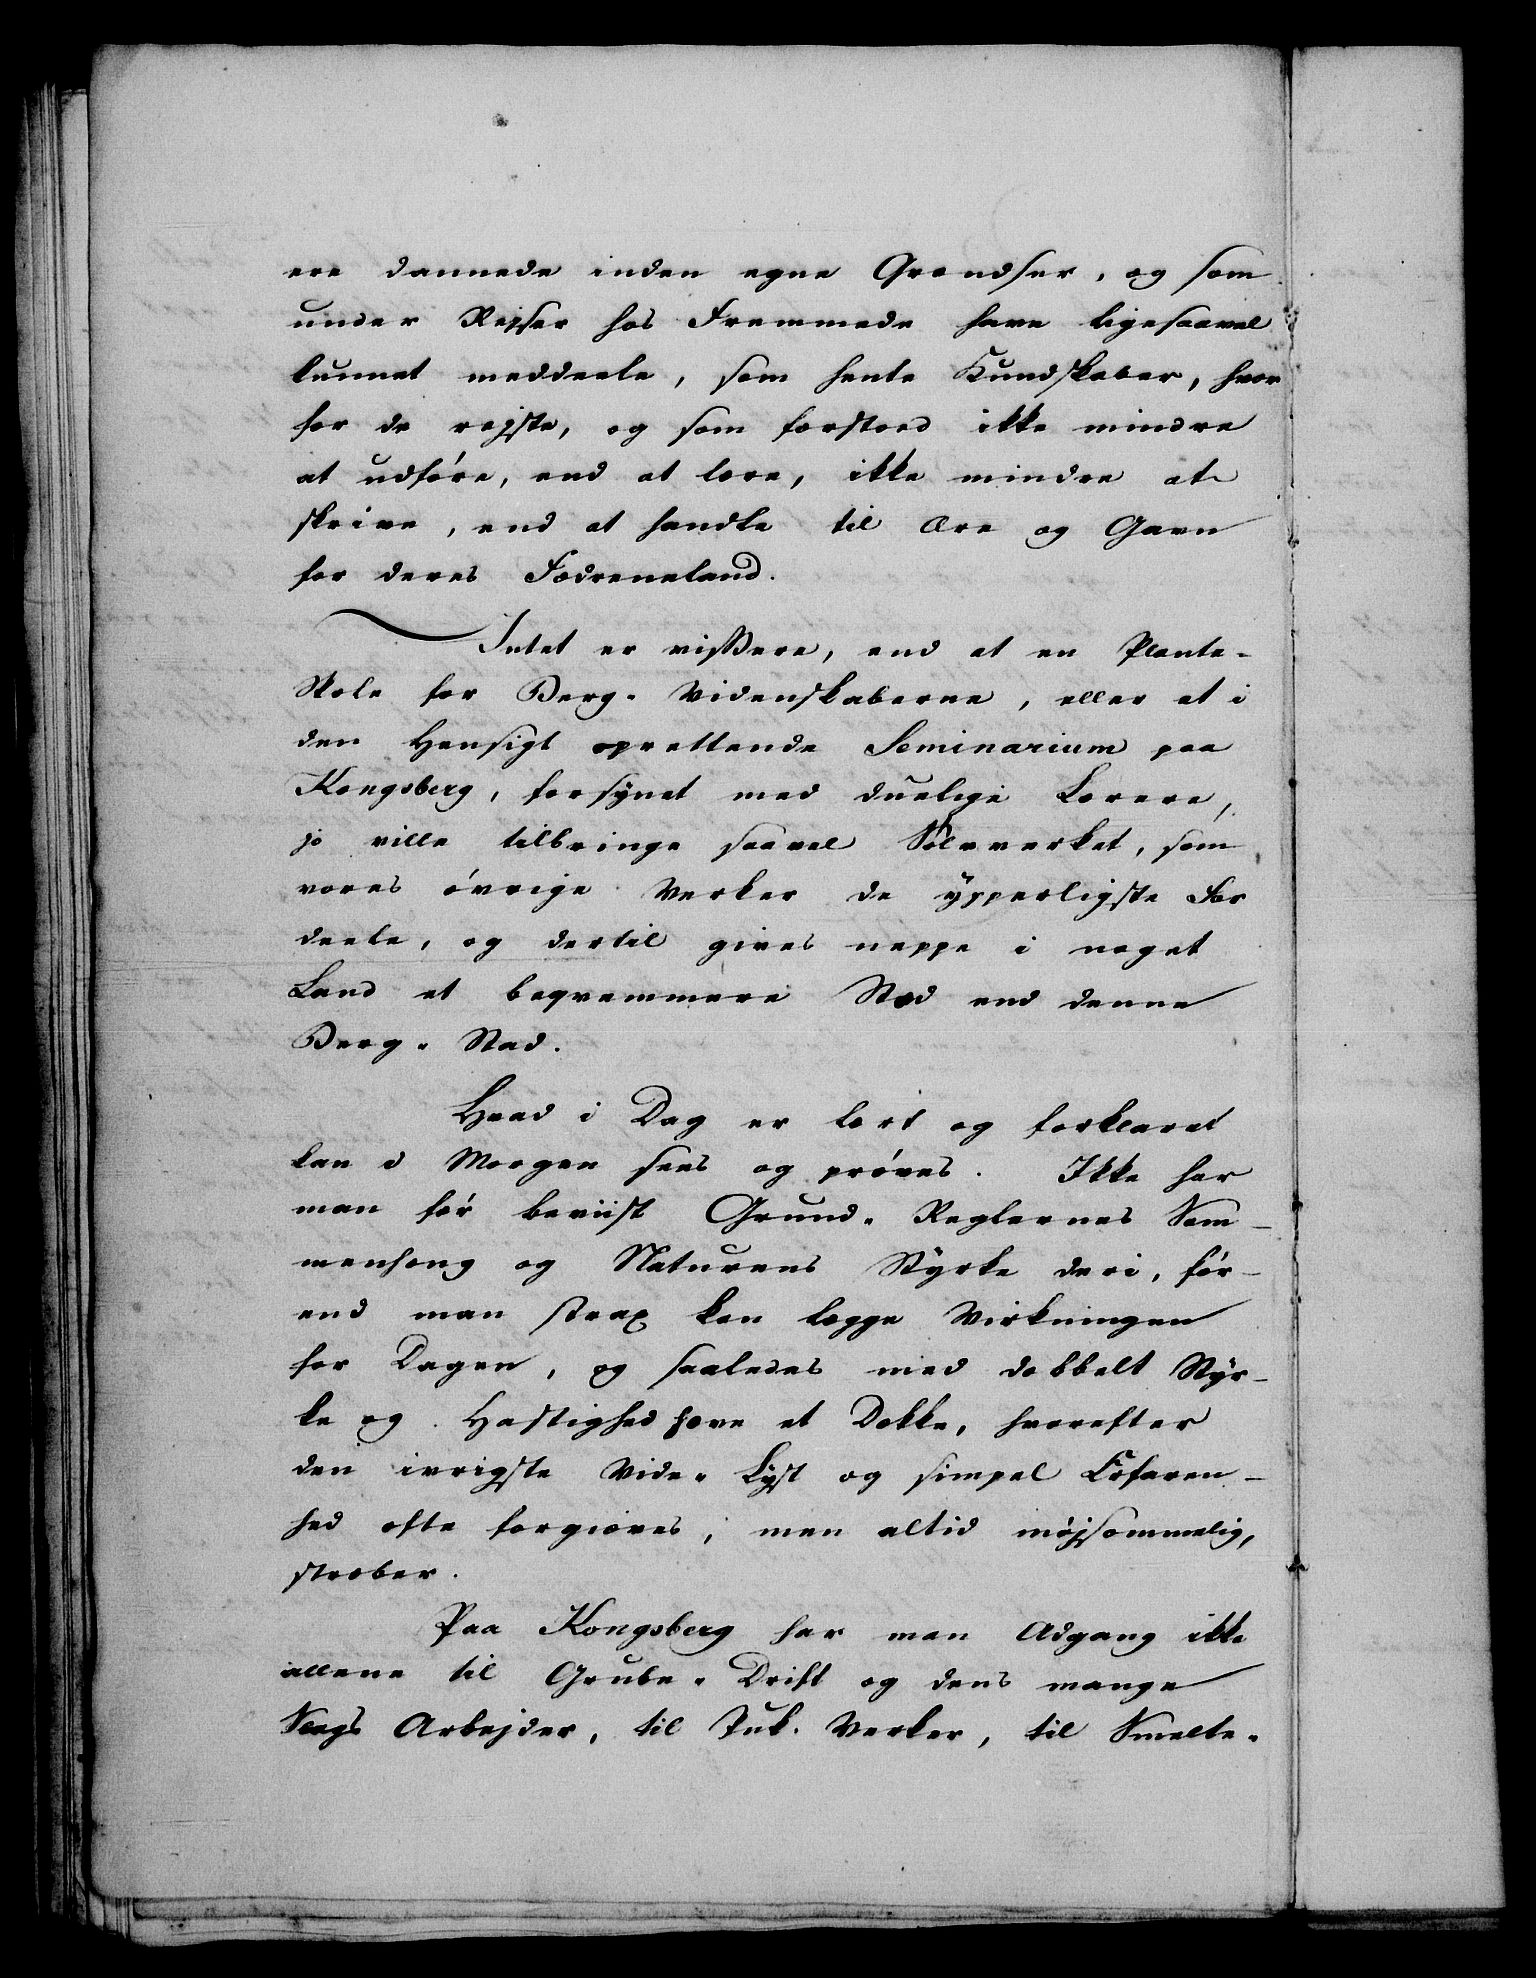 ere dannede inden egne Grændser, og som
under Rejser hos Fremmede have ligesaavel
kunnet meddeele, som hente Kundskaber, hvor
for de rejste, og som forstoed ikke mindre
at udføre, end at lære, ikke mindre at
skrive, end at handle til Ære og Gavn
for deres Fædreneland.
Intet er vissere, end at en Plante-
Skole for Berg-Videnskaberne, eller et i
den Hensigt oprettende Seminarium paa
Kongsberg, forsÿnet med duelige Lærere,
jo ville tilbringe saavel Sølvverket, som
vores øvrige Verker de ÿpperligste For
deele, og dertil gives neppe i noget
Land et beqvemmere Sted end denne
Berg-Stad.
Hvad i Dag er lært og forklaret
kan i Morgen sees og prøves. Ikke har
man før beviist Grund-Reglernes Sam-
menhæng og Naturens Styrke deri, før-
end man strax kan lægge Virkningen
for Dagen, og saaledes med dobbelt Styr-
ke og Hastighed hæve et Dække, hvorefter
den ivrigste Vide-Lÿst og simpel Erfaren-
hed ofte forgiæves, men altid møjsommelig,
stræber.
Paa Kongsberg har man Adgang ikke
allene til Grube-Drift og dens mange
Slags Arbejder, til Puk-Verker, til Smelte-